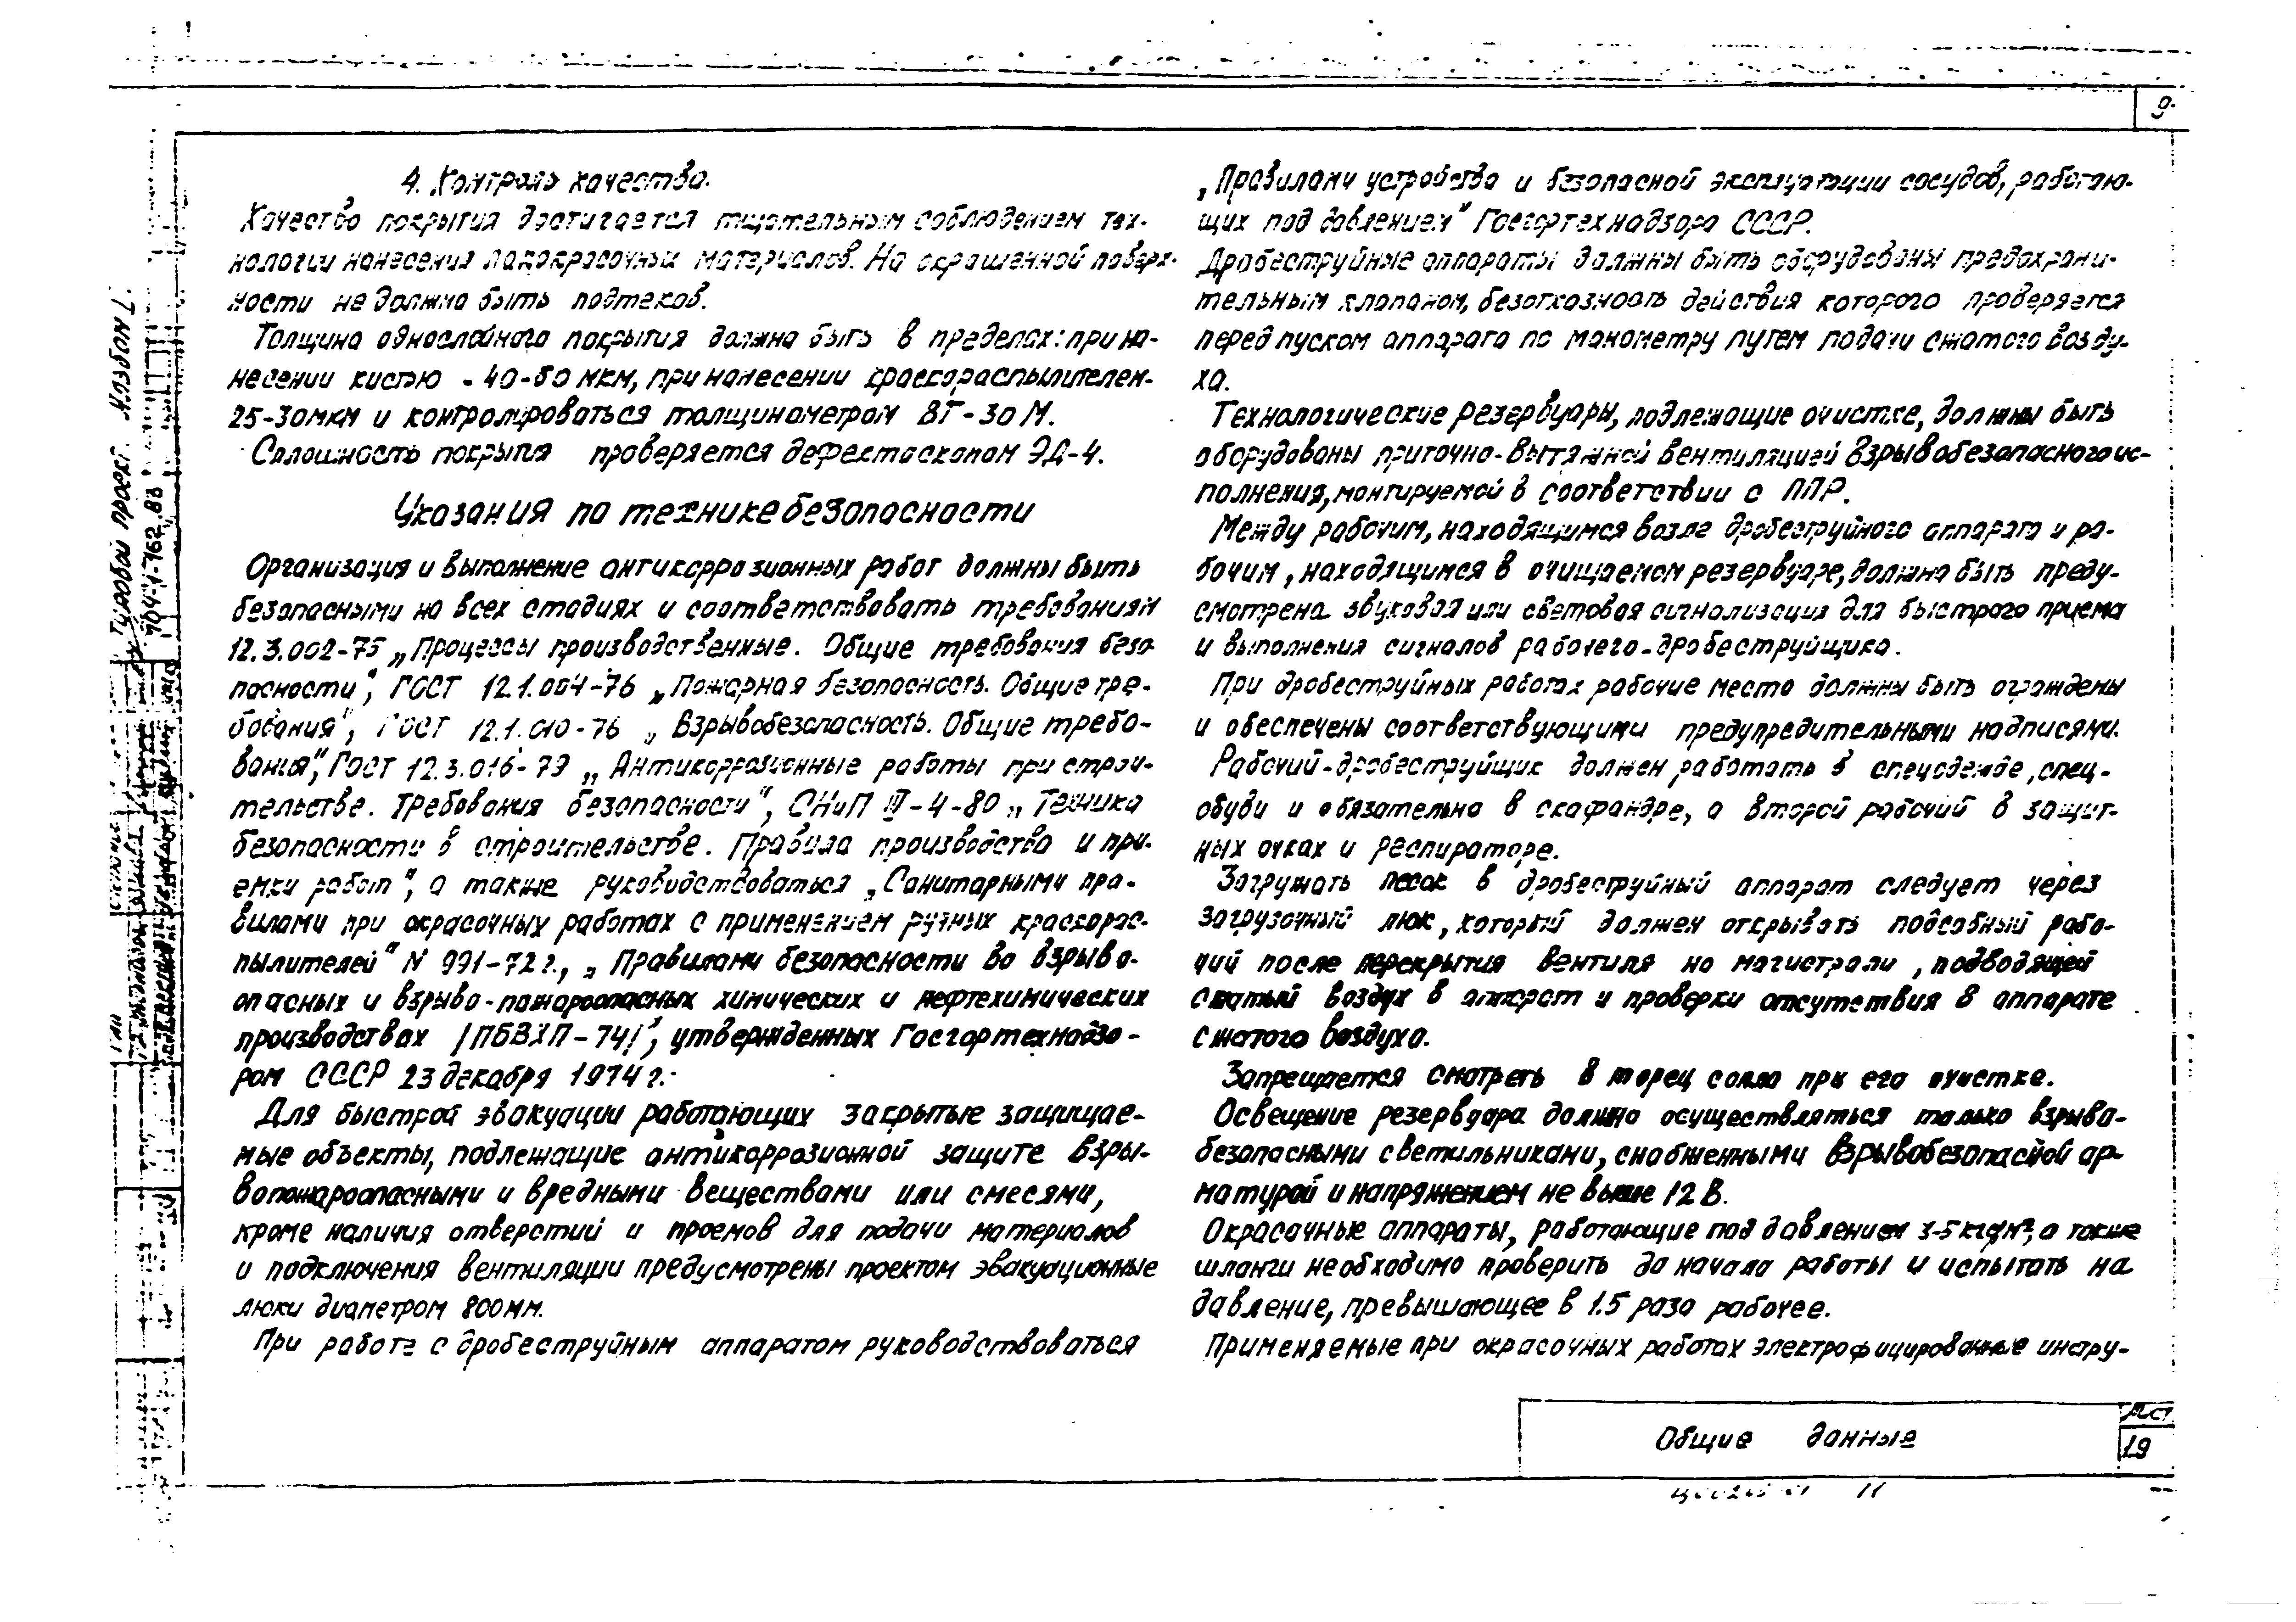 9
4. Контроль качества.
Качество покрытия достигается тщательным соблюдением тех-
нологии нанесения лакокрасочных материалов. На окрашенной поверх-
ности не должно быть подтеков.
Толщина однослойного покрытия должна быть в пределах: при на-
несении кистью - 40-50 мкм, при нанесении краскораспылителем-
25-30мкм и контролироваться толщинометром ВГ-30М.
Сплошность покрытия проверяется дефектоскопом ЭД-4.
Указания по технике безопасности
Организация и выполнение антикоррозионных работ должны быть
безопасными на всех стадиях и соответствовать требованиям
12.3.002-75 „Процессы производственные. Общие требования безо-
пасности", ГОСТ 12.1.004-76 „Пожарная безопасность. Общие тре-
бования", ГОСТ 12.1.010-76 „Взрывобезопасность. Общие требо-
вания", ГОСТ 12.3.016-79 „Антикоррозионные работы при строи-
тельстве. Требования безопасности", СНиП III-4-80 „Техника
безопасности в строительстве. Правила производства и при-
емки работ", а также руководствоваться „Санитарными пра-
вилами при окрасочных работах с применением ручных краскорас-
пылителей" N 991-72г., „Правилами безопасности во взрыво-
опасных и взрыво-пожароопасных химических и нефтехимических
производствах /ПБВХП-74/", утвержденных Госгортехнадзо-
ром СССР 23 декабря 1974г.
Для быстрой эвакуации работающих закрытые защищае-
мые объекты, подлежащие антикоррозионной защите взры-
вопожароопасными и вредными веществами или смесями,
кроме наличия отверстий и проемов для подачи материалов
и подключения вентиляции предусмотрены проектом эвакуационные
люки диаметром 800мм.
При работе с дробеструйным аппаратом руководствоваться
„Правилами устройства и безопасной эксплуатации сосудов, работаю-
щих под давлением" Госгортехнадзора СССР.
Дробеструйные аппараты должны быть оборудованы предохрани-
тельным клапаном, безотказность действия которого проверяется
перед пуском аппарата по манометру путем подачи сжатого возду-
ха.
Технологические резервуары, подлежащие очистке, должны быть
оборудованы приточно-вытяжной вентиляцией взрывобезопасного ис-
полнения, монтируемой в соответствии с ППР.
Между рабочим, находящимся возле дробеструйного аппарата и ра-
бочим, находящимся в очищаемом резервуаре, должна быть преду-
смотрена звуковая или световая сигнализация для быстрого приема
и выполнения сигналов рабочего-дробеструйщика.
При дробеструйных работах рабочие места должны быть ограждены
и обеспечены соответствующими предупредительными надписями.
Рабочий-дробеструйщик должен работать в спецодежде, спец-
обуви и обязательно в скафандре, а второй рабочий в защит-
ных очках и респираторе.
Загружать песок в дробеструйный аппарат следует через
загрузочный люк, который должен открывать подсобный рабо-
чий после перекрытия вентиля на магистрали, подводящей
сжатый воздух в аппарат и проверки отсутствия в аппарате
сжатого воздуха.
Запрещается смотреть в торец сопла при его очистке.
Освещение резервуара должно осуществляться только взрыво-
безопасными светильниками, снабженными взрывобезопасной ар-
матурой и напряжением не выше 12 В.
Окрасочные аппараты, работающие под давлением 3-5 а также
шланги необходимо проверить до начала работы и испытать на
давление, превышающее в 1.5 раза рабочее.
Применяемые при окрасочных работах электрофицированные инстру-
Общие данные
Лист
19
Типовой проект
704-1-162.83
Альбом I.
11